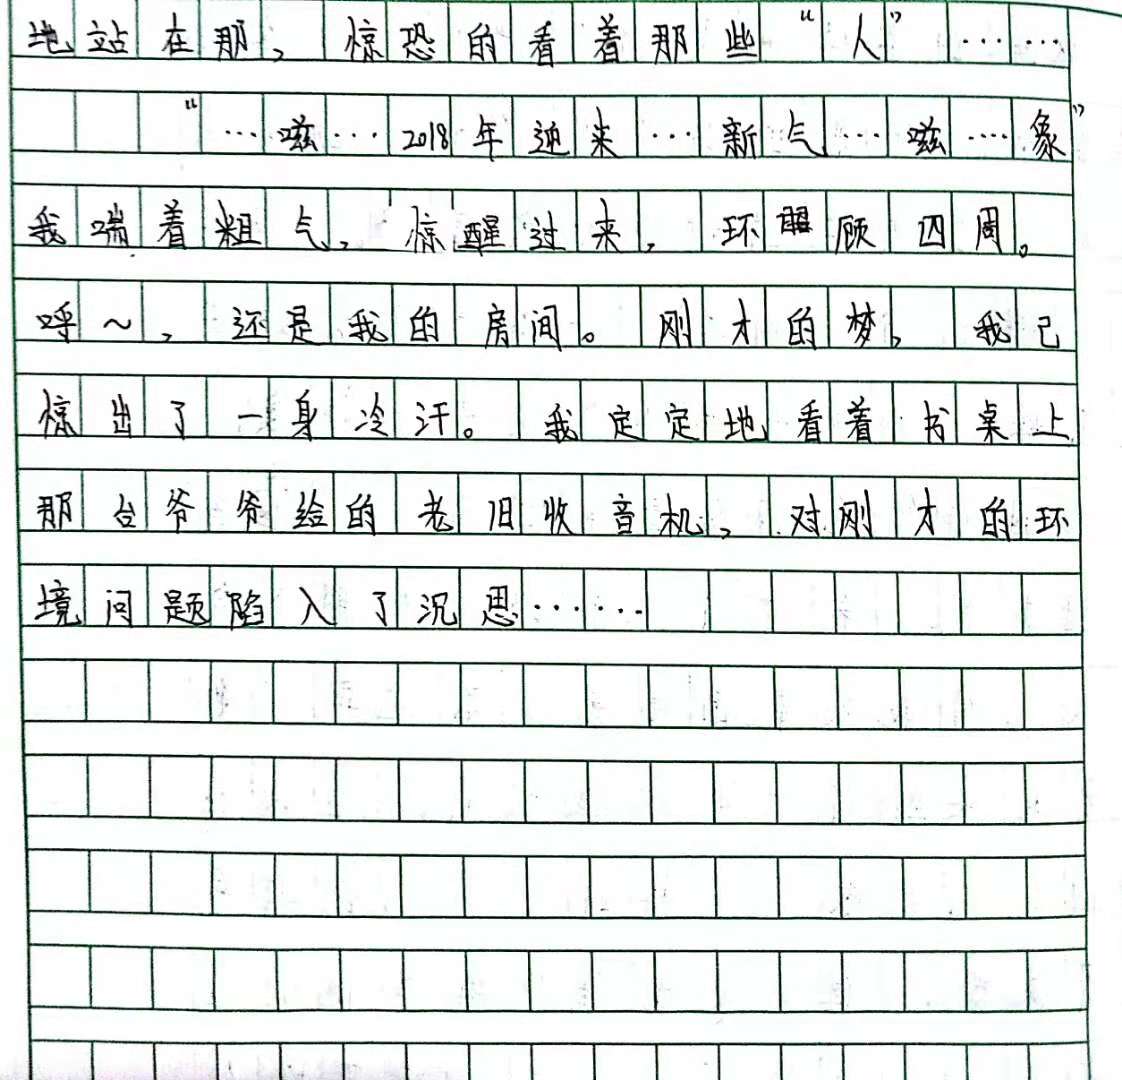 地站在那，惊恐的看着那些“人”……
“…嗞…2018年迎来…新气…嗞…象”
我喘着粗气，惊醒过来，环顾四周。
呼～，还是我的房间。刚才的梦，我已
惊出了一身冷汗。我定定地看着书桌上
那台爷爷给的老旧收音机，对刚才的环
境问题陷入了沉思……